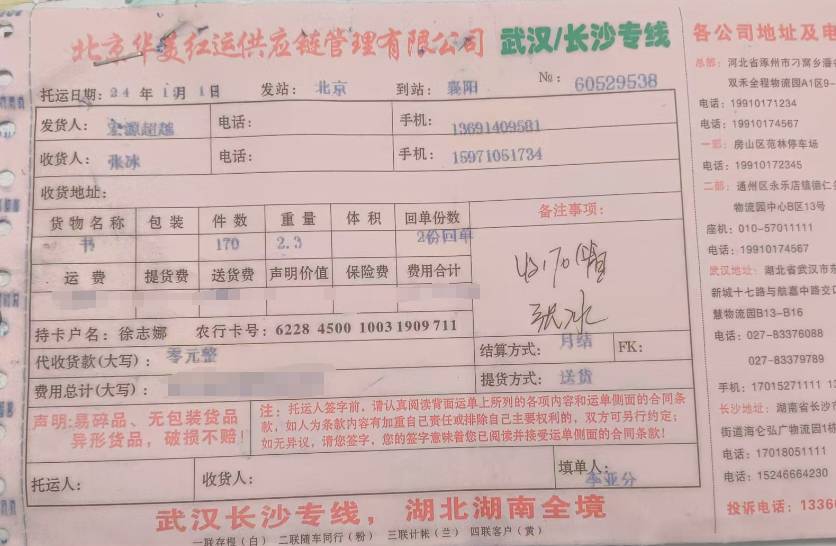 北京华美红运供应链管理有限公司 武汉/长沙专线
托运日期: 24 年 11月 1日 发站: 北京 到站: 襄阳 №: 60529538
发货人: 宏源超越 电话: 手机: 13691409581
收货人: 张冰 电话: 手机: 15971051734
收货地址:
货物名称 包装 件数 重量 体积 回单份数 备注事项:
书 170 2.3 2份回单
运费 提货费 送货费 声明价值 保险费 费用合计
收170
张冰
持卡户名: 徐志娜 农行卡号: 6228 4500 1003 1909 711
代收货款(大写): 零元整 结算方式: 月结 FK:
费用总计(大写): 提货方式: 送货
声明:易碎品、无包装货品
异形货品，破损不赔!
注: 托运人签字前，请认真阅读背面运单上所列的各项内容和运单侧面的合同条
款，如人为条款内容有加重自己责任或排除自己主要权利的，双方可另行约定;
如无异议，请您签字，您的签字意味着您已阅读并接受运单侧面的合同条款!
托运人: 收货人: 填单人: 李亚分
武汉长沙专线，湖北湖南全境
一联存根(白) 二联随车同行(粉) 三联计帐(兰) 四联客户(黄)
各公司地址及电
总部: 河北省涿州市刁窝乡潘
双禾全程物流园A1区9-
电话: 19910171234
电话: 19910174567
一部: 房山区范林停车场
电话: 19910172345
二部: 通州区永乐店镇德仁
物流园中心B区13号
座机: 010-57011111
电话: 19910174567
武汉地址: 湖北省武汉市东
新城十七路与航嘉中路交
慧物流园B13-B16
电话: 027-83376088
027-83379789
手机: 17015271111 13
长沙地址: 湖南省长沙市
街道海仑弘广物流园1栋
电话: 17018051111
电话: 15246664230
投诉电话: 1336